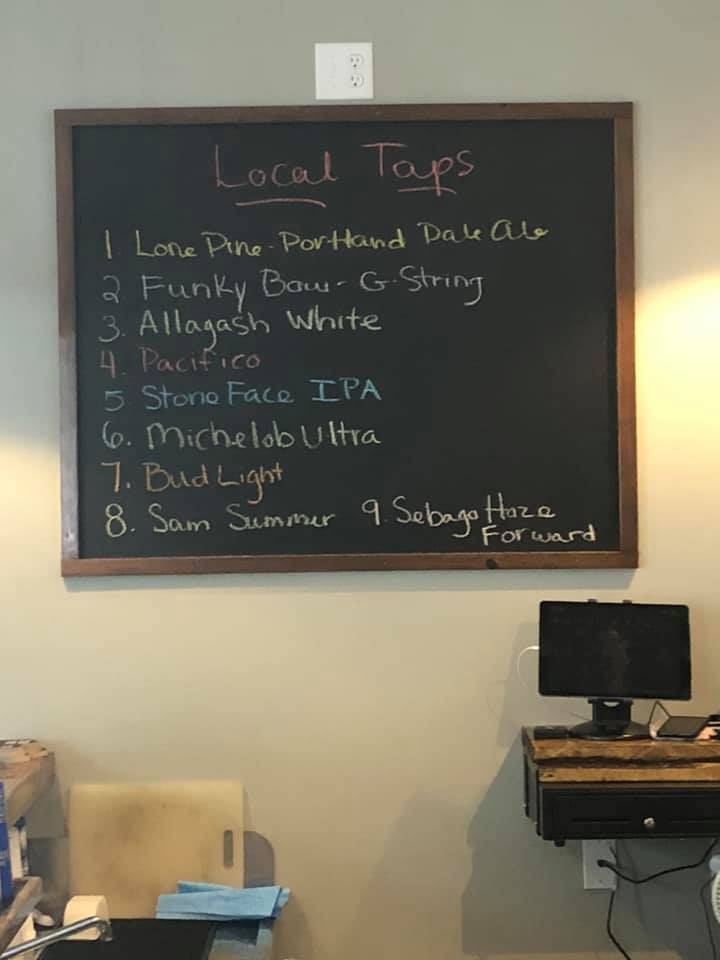 Local Taps
1 Lone Pine - Portland Pale Ale
2 Funky Bow - G-String
3. Allagash White
4. Pacifico
5 Stone Face IPA
6. Michelob Ultra
7. Bud Light
8. Sam Summer 9. Sebago Haze
Forward